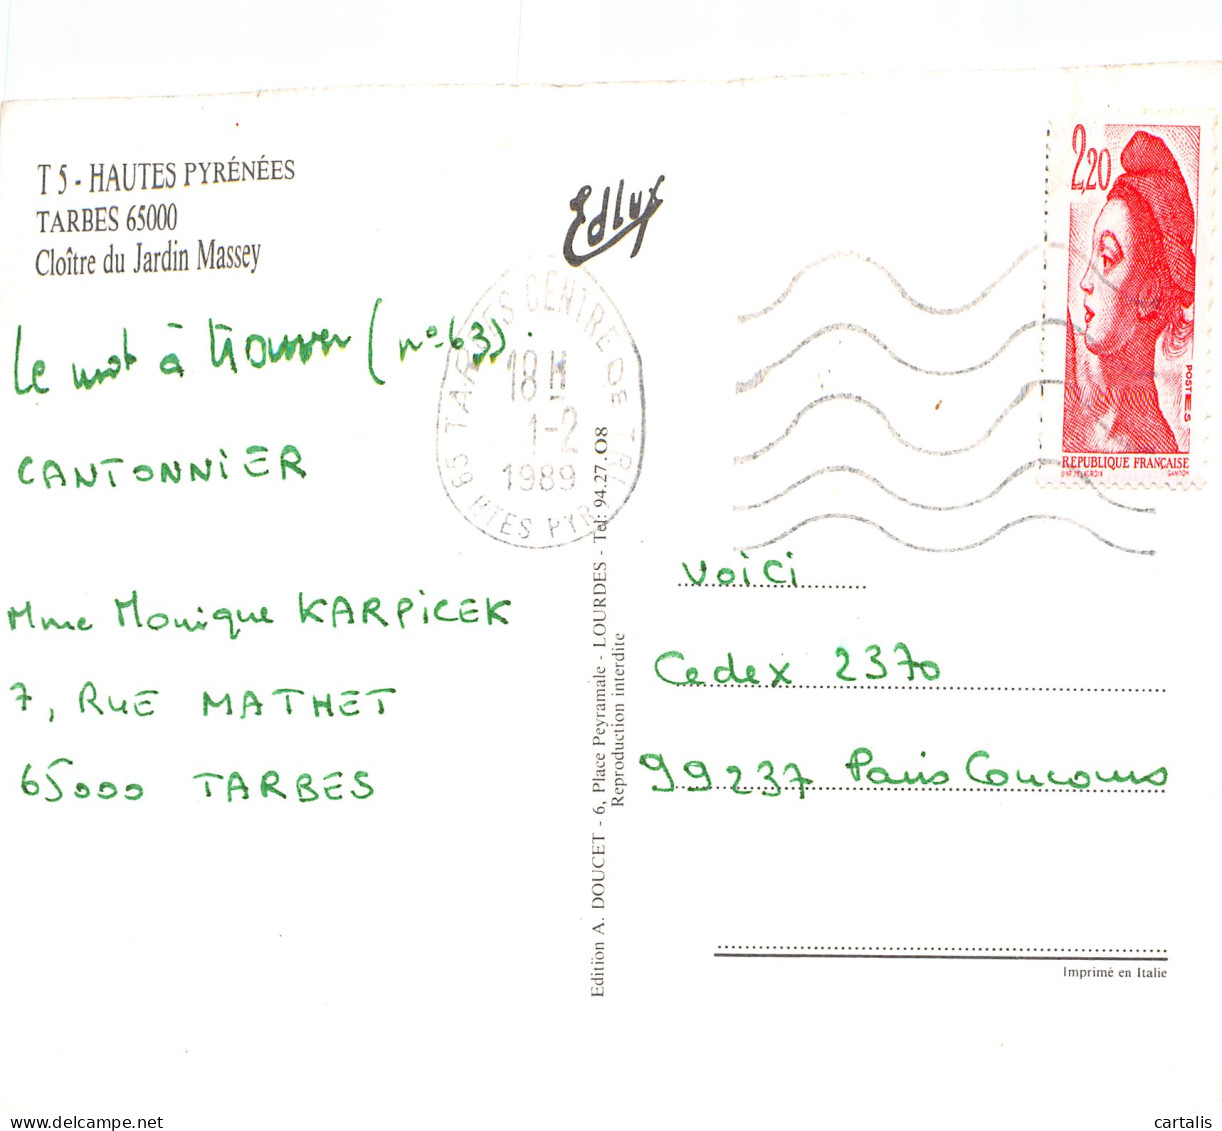 T 5 - HAUTES PYRÉNÉES
TARBES 65000
Cloître du Jardin Massey
Edlux
Le mot à trouver (n° 63).
CANTONNIER
Mme Monique KARPICEK
7, RUE MATHET
65000 TARBES
65 TARBES CENTRE DE TRI
18 H
1-2
1989
HTES PYR
Edition A. DOUCET - 6, Place Peyramale - LOURDES - Tel: 94.27.O8
Reproduction interdite
2,20
POSTES
RÉPUBLIQUE FRANÇAISE
D'AP. DELACROIX GANDON
VOICI
Cedex 2370
99237 Paris Concours
Imprimé en Italie
cartalis
delcampe.net